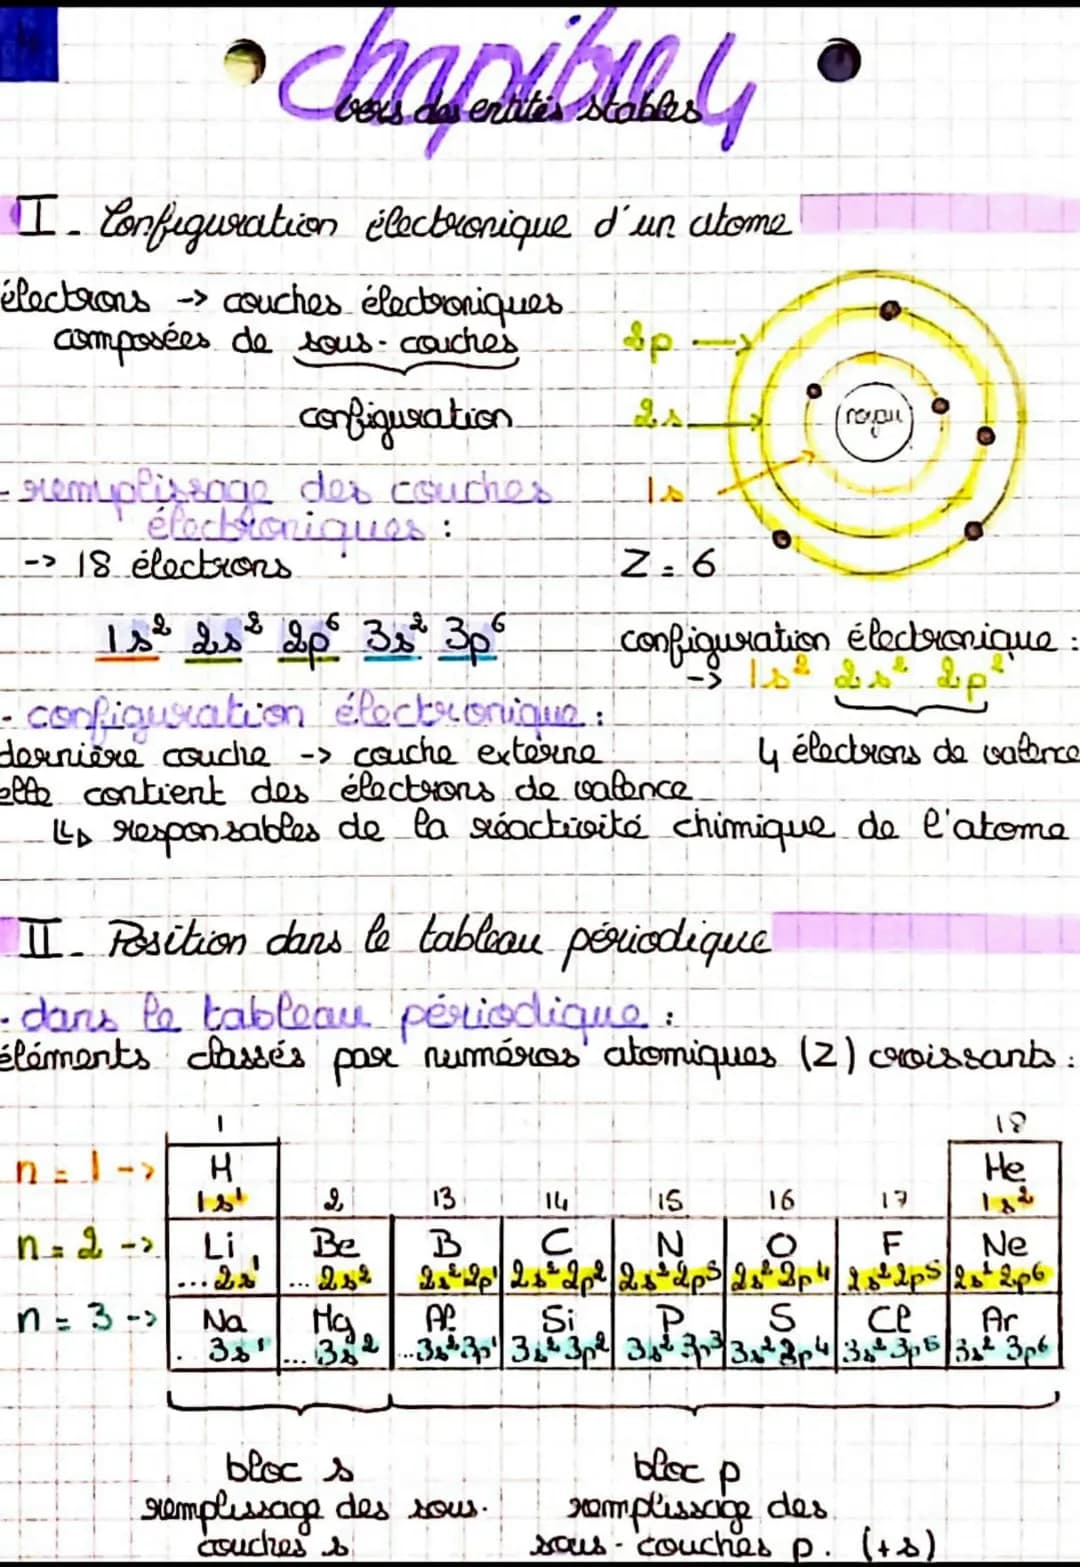 chapitre 4
vers des entités stables
I - Configuration électronique d'un atome
électrons -> couches électroniques
composées de sous-couches
configuration
2p ->
2s ->
1s ->
noyau
- remplissage des couches
électroniques :
-> 18 électrons
Z = 6
1s² 2s² 2p⁶ 3s² 3p⁶
configuration électronique :
-> 1s² 2s² 2p²
4 électrons de valence
- configuration électronique :
dernière couche -> couche externe
elle contient des électrons de valence
↳ responsables de la réactivité chimique de l'atome
II - Position dans le tableau périodique
- dans le tableau périodique :
éléments classés par numéros atomiques (Z) croissants :
1 18
n = 1 -> H He
1s¹ 2 13 14 15 16 17 1s²
n = 2 -> Li Be B C N O F Ne
...2s¹ ...2s² 2s² 2p¹ 2s² 2p² 2s² 2p³ 2s² 2p⁴ 2s² 2p⁵ 2s² 2p⁶
n = 3 -> Na Mg Al Si P S Cl Ar
...3s¹ ...3s² ...3s² 3p¹ 3s² 3p² 3s² 3p³ 3s² 3p⁴ 3s² 3p⁵ 3s² 3p⁶
bloc s bloc p
remplissage des sous- remplissage des
couches s sous-couches p. (+s)